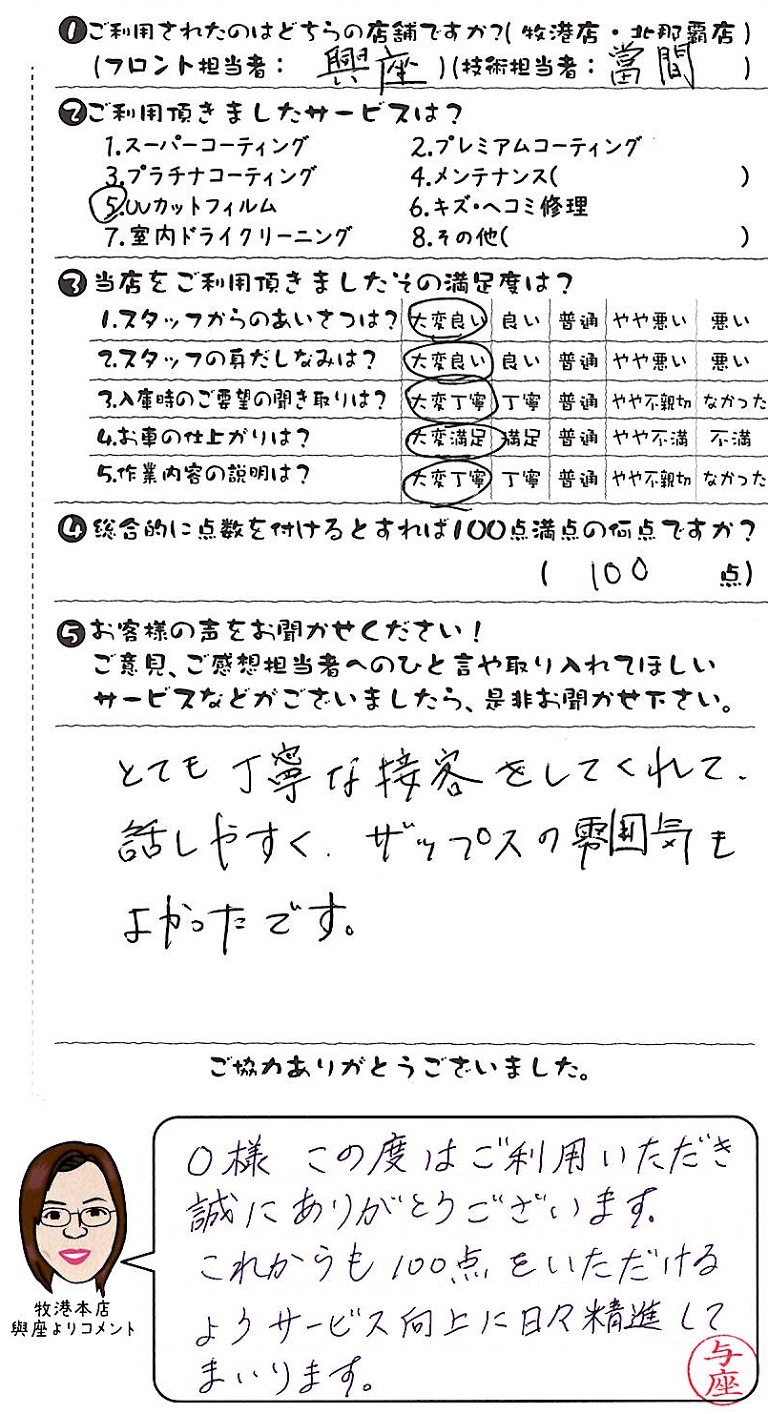 ❶ご利用されたのはどちらの店舗ですか?(牧港店・北那覇店)
(フロント担当者: 興座)(技術担当者: 當間 )
❷ご利用頂きましたサービスは?
1.スーパーコーティング 2.プレミアムコーティング
3.プラチナコーティング 4.メンテナンス( )
5.UVカットフィルム 6.キズ・ヘコミ修理
7.室内ドライクリーニング 8.その他( )
❸当店をご利用頂きましたその満足度は?
1.スタッフからのあいさつは? 大変良い 良い 普通 やや悪い 悪い
2.スタッフの身だしなみは? 大変良い 良い 普通 やや悪い 悪い
3.入庫時のご要望の聞き取りは? 大変丁寧 丁寧 普通 やや不親切 なかった
4.お車の仕上がりは? 大変満足 満足 普通 やや不満 不満
5.作業内容の説明は? 大変丁寧 丁寧 普通 やや不親切 なかった
❹総合的に点数を付けるとすれば100点満点の何点ですか?
( 100 点)
❺お客様の声をお聞かせください!
ご意見、ご感想担当者へのひと言や取り入れてほしい
サービスなどがございましたら、是非お聞かせ下さい。
とても丁寧な接客をしてくれて、
話しやすく、ザップスの雰囲気も
よかったです。
ご協力ありがとうございました。
O様 この度はご利用いただき
誠にありがとうございます。
これからも100点をいただける
ようサービス向上に日々精進して
まいります。
与座
牧港本店
與座よりコメント